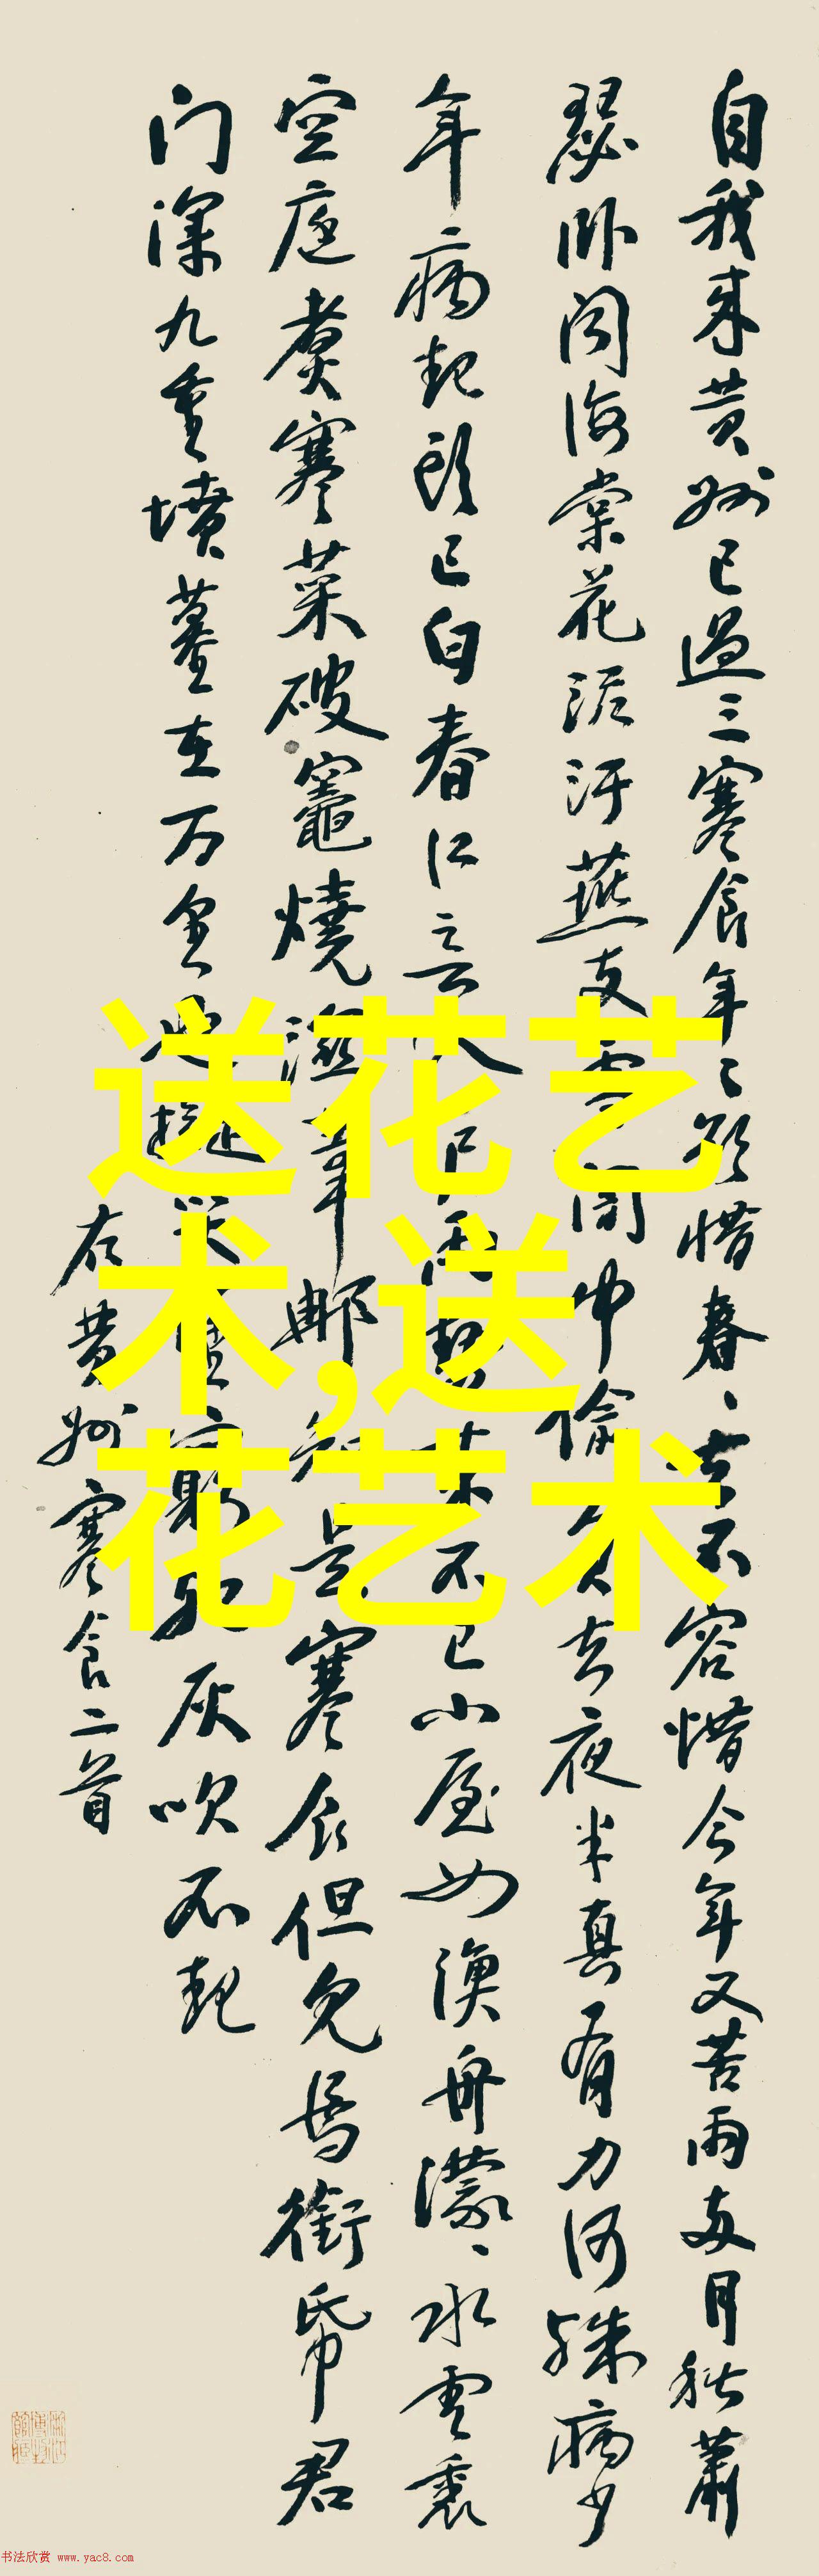 自我来黄州已過三寒食年々欲惜春、去不容惜今年又苦雨兩月秋蕭
瑟卧闻海棠花泥汙燕支雪闇中偷負去夜半真有力何殊病少
年病起頭已白春江欲入户雨勢来不已小屋如漁舟濛、水雲裏
空庭煑寒菜破竈燒濕葦那知是寒食但見烏銜帋君
门深九重墳墓在万里也擬哭塗窮死灰吹不起
右黄州寒食二首
送花艺
术,送
花艺术
书法欣赏 www.yac8.com